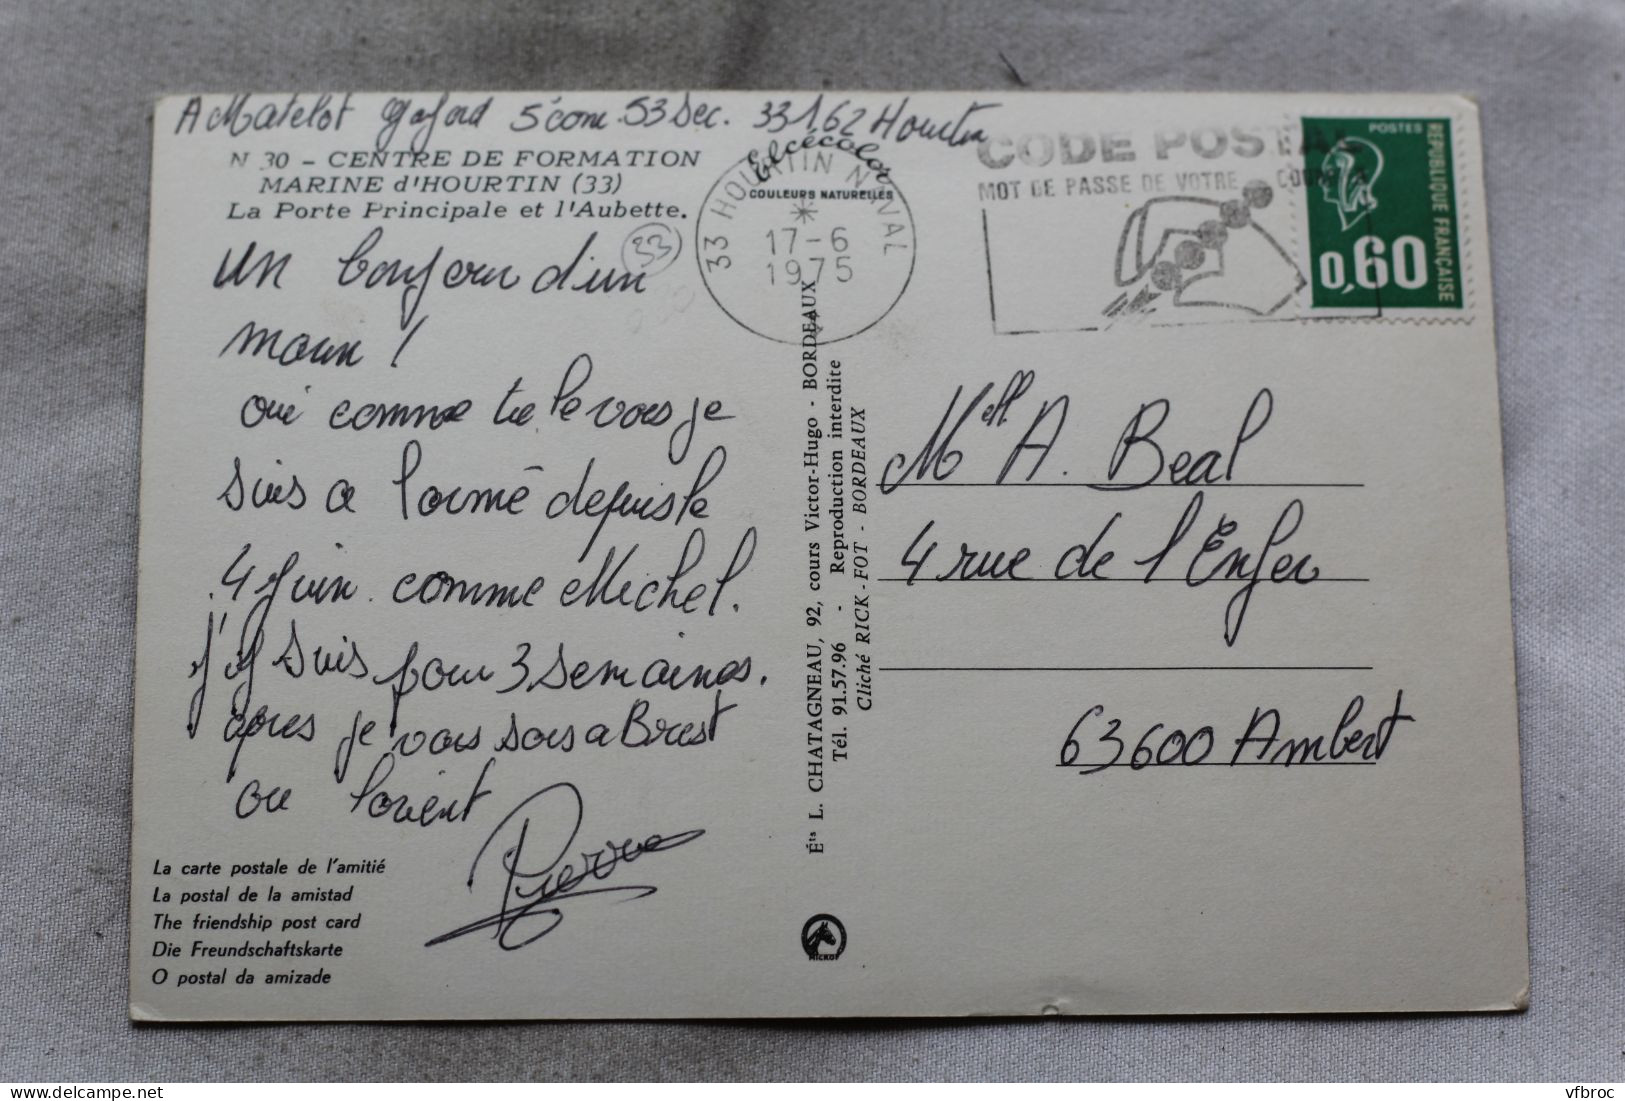 A Matelot 5'com. 53 Sec. 33162 Hourtin
N 30 - CENTRE DE FORMATION
MARINE d'HOURTIN (33)
La Porte Principale et l'Aubette.
33
un bonjour d'un
marin !
oui comme tu le vois je
suis a l'armé depuis le
4 Juin. comme Michel.
j'y suis pour 3 semaines.
apres je vais sois a Brest
ou Lorient
Pierre
La carte postale de l'amitié
La postal de la amistad
The friendship post card
Die Freundschaftskarte
O postal da amizade
Elcécolor
COULEURS NATURELLES
33 HOURTIN NAVAL
17-6
1975
Éts L. CHATAGNEAU, 92, cours Victor-Hugo - BORDEAUX
Tél. 91.57.96 - Reproduction interdite
Cliché RICK-FOT - BORDEAUX
MICKOF
CODE POSTAL
MOT DE PASSE DE VOTRE
POSTES
REPUBLIQUE FRANCAISE
0,60
Mell A. Beal
4 rue de l'Enfer
63600 Ambert
vfbroc